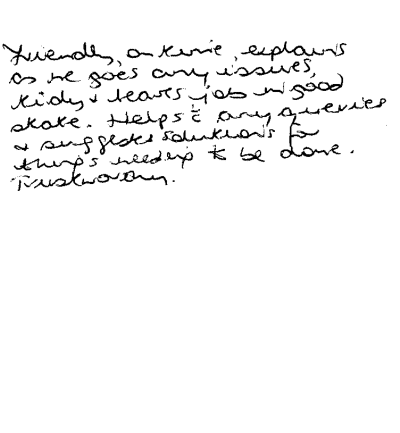 Friendly, on time, explains
as he goes any issues,
tidy & leaves job in good
state. Helps c̄ any queries
& suggests solutions for
things needing to be done.
Trustworthy.